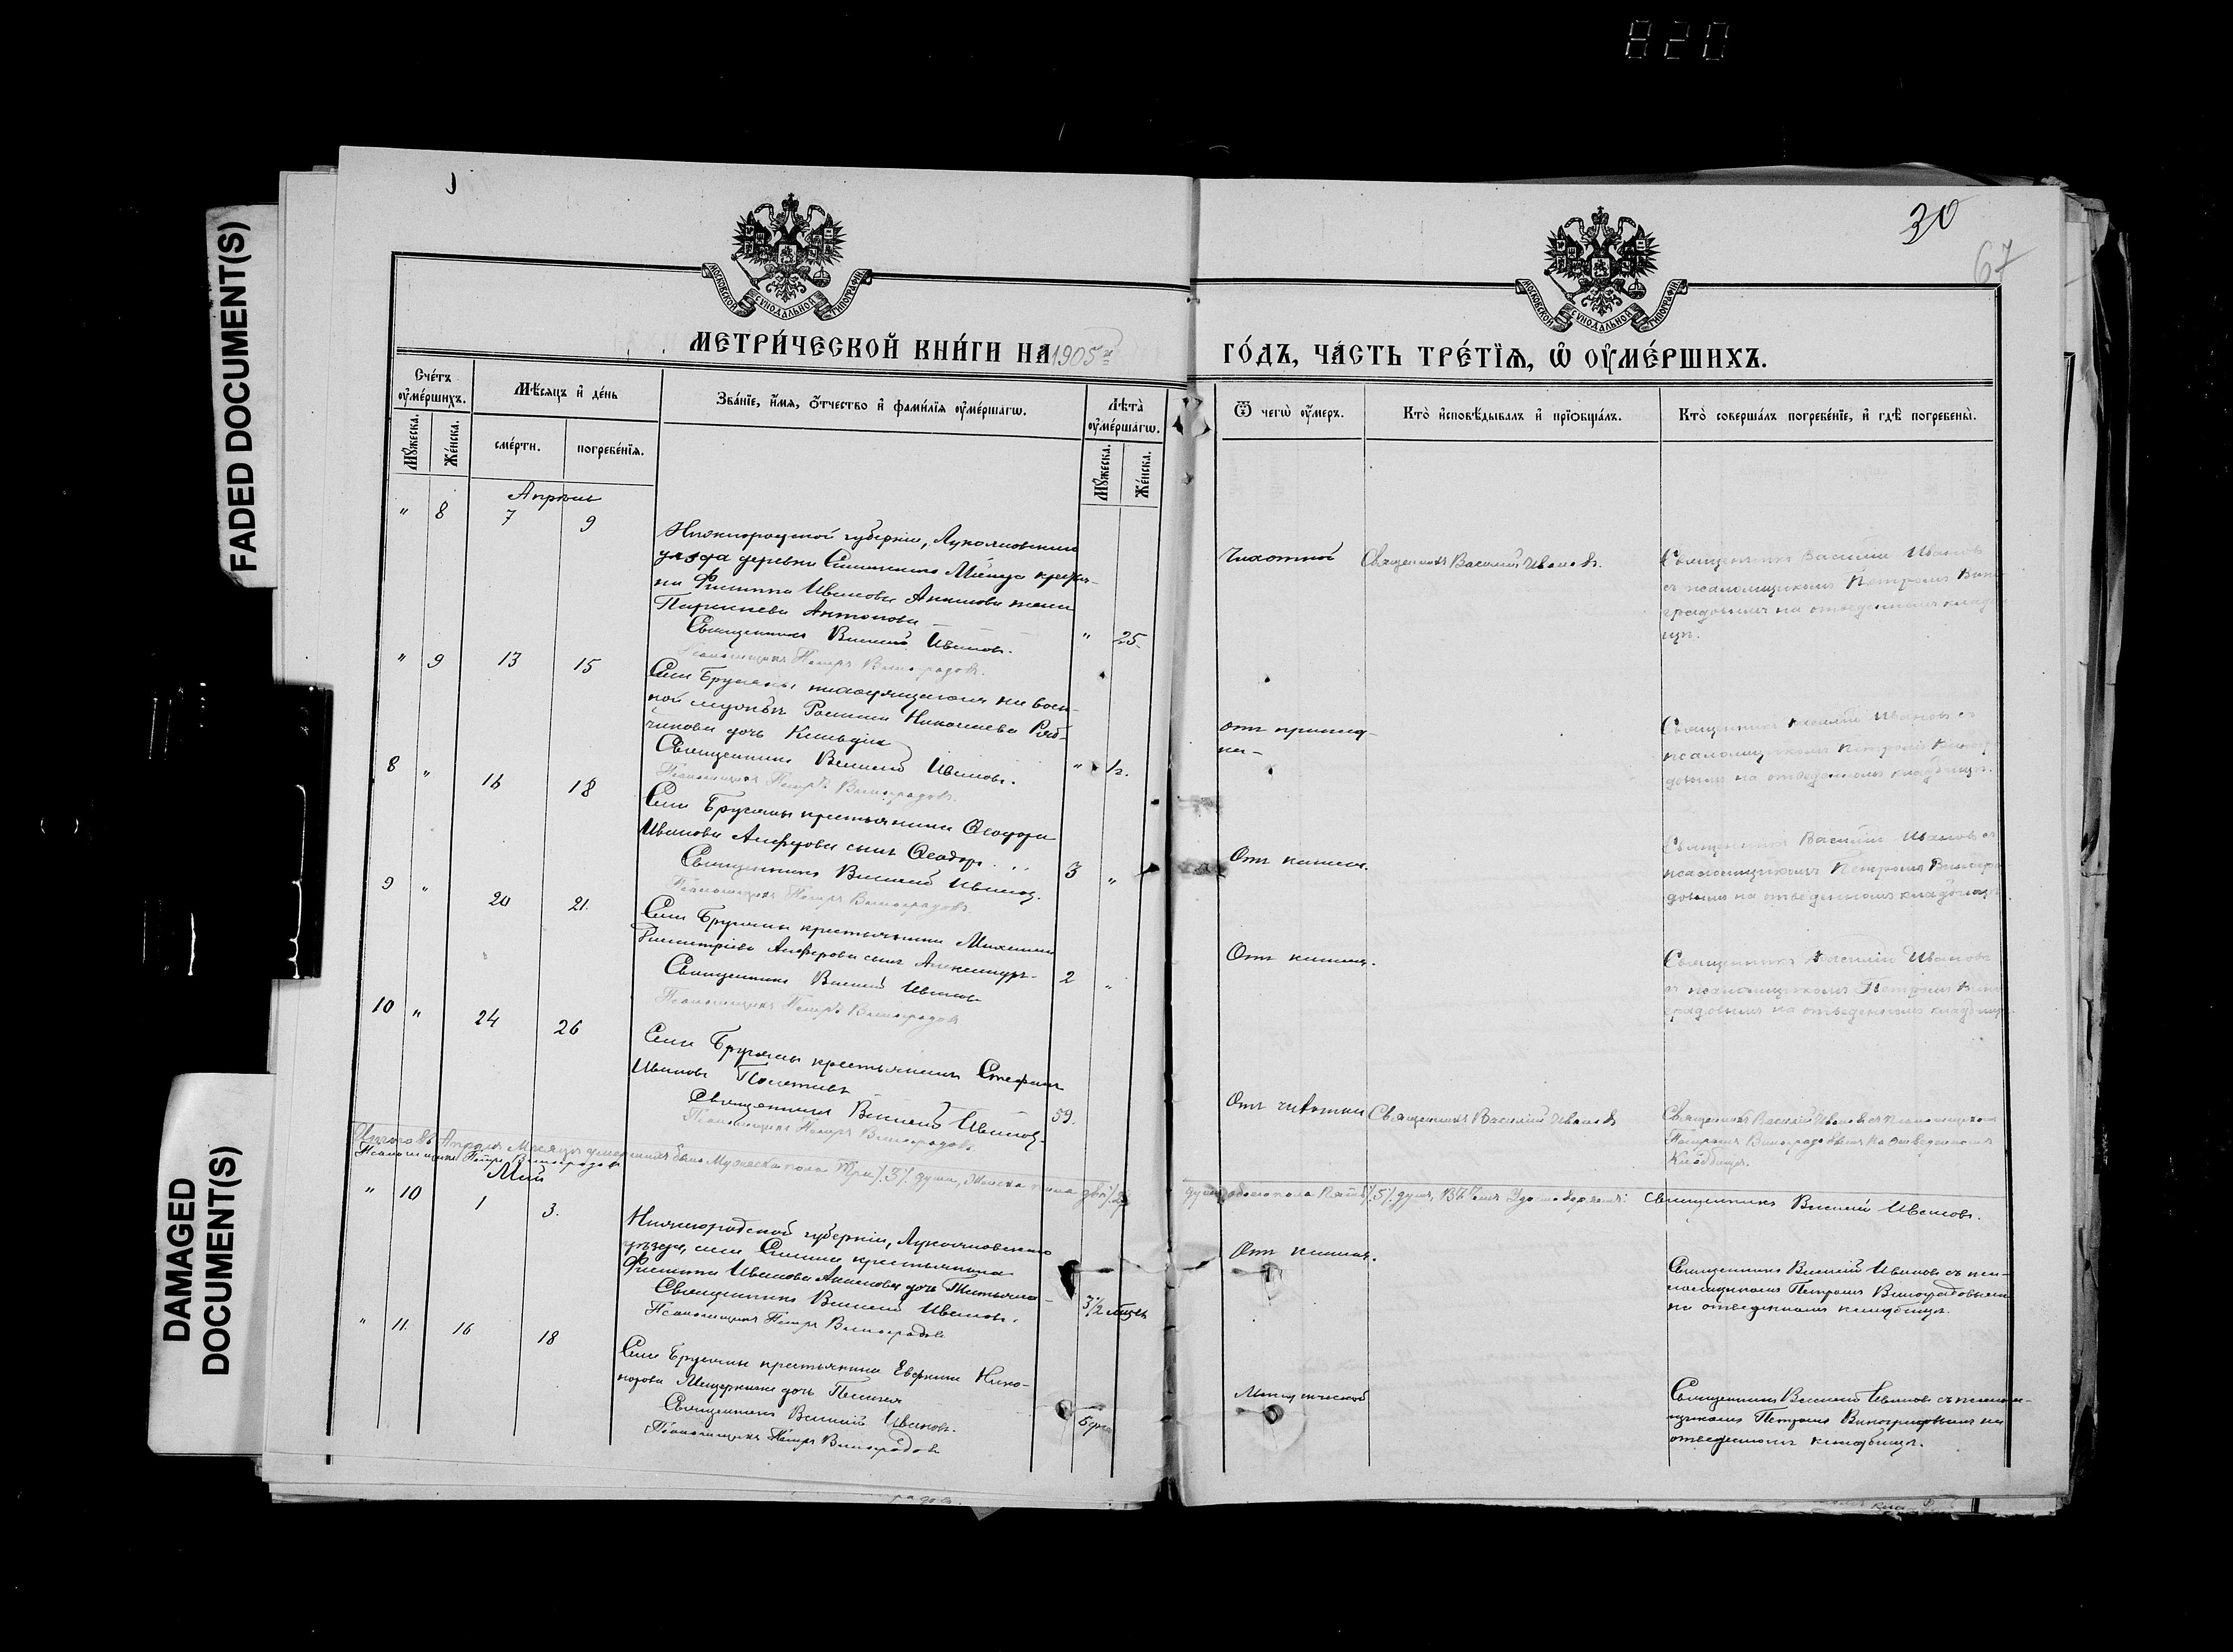 820
FADED DOCUMENT(S)
DAMAGED
DOCUMENT(S)
30
67
МОСКОВСКОЙ СУНОДАЛЬНОЙ ТИПОГРАФІИ
МОСКОВСКОЙ СУНОДАЛЬНОЙ ТИПОГРАФІИ
МЕТРИ́ЧЕСКОЙ КНИ́ГИ НА 1905 й ГО́ДЪ, ЧА́СТЬ ТРЕ́ТЇѦ, Ѡ ОУ҆МЕ́РШИХЪ.
Сче́тъ оу҆ме́ршихъ.
Мꙋ́жеска.
Же́нска.
Мѣ́сяцъ и҆ де́нь
сме́рти.
погребе́нїя.
Зва́нїе, и҆́мя, ѻ҆́тчество и҆ фами́лїя оу҆ме́ршагѡ.
Лѣ́та оу҆ме́ршагѡ.
Мꙋ́жеска.
Же́нска.
Ѿ чегѡ̀ оу҆́меръ.
Кто̀ и҆сповѣ́дывалъ и҆ прїѡбща́лъ.
Кто̀ соверша́лъ погребе́нїе, и҆ гдѣ̀ погребены̀.
Апрѣль
" 8 7 9
Нижегородской губерніи, Лукояновскаго
уѣзда деревни
Филиппа Иванова жена
Антонова
Священникъ Василій Ивановъ.
Псаломщикъ Петръ Виноградовъ.
" 25.
Чахоткой
Священникъ Василій Ивановъ.
Священникъ Василій Ивановъ
съ псаломщикомъ Петромъ Вино-
градовымъ на отведенномъ кладби-
щѣ.
" 9 13 15
Села находящагося на воен-
ной службѣ Николаева Ряб-
чикова дочь Клавдія
Священникъ Василій Ивановъ.
Псаломщикъ Петръ Виноградовъ.
" ½.
Священникъ Василій Ивановъ съ
псаломщикомъ Петромъ Виногра-
довымъ на отведенномъ кладбищѣ.
8 " 16 18
Села крестьянина Ѳеодора
Иванова сынъ Ѳеодоръ
Священникъ Василій Ивановъ.
Псаломщикъ Петръ Виноградовъ
3 "
Отъ кашля.
Священникъ Василій Ивановъ съ
псаломщикомъ Петромъ Виногра-
довымъ на отведенномъ кладбищѣ
9 " 20 21.
Села крестьянина Михаила
Димитріева сынъ Александръ
Священникъ Василій Ивановъ
Псаломщикъ Петръ Виноградовъ
2 "
Отъ кашля.
Священникъ Василій Ивановъ
съ псаломщикомъ Петромъ Вино-
градовымъ на отведенномъ кладбищѣ
10 " 24 26
Села крестьянинъ Стефанъ
Ивановъ
Священникъ Василій Ивановъ
Псаломщикъ Петръ Виноградовъ.
59.
Отъ чахотки
Священникъ Василій Ивановъ
Священникъ Василій Ивановъ съ псаломщикомъ
Петромъ Виноградовымъ на отведенномъ
кладбищѣ.
Итого въ Апрѣлѣ Мѣсяцѣ умершихъ было Мужеска пола Три /3/ души, Женска пола двѣ /2/ души, обоего пола Пять /5/ душъ, въ чемъ удостовѣряемъ: Священникъ Василій Ивановъ.
Псаломщикъ Петръ Виноградовъ
Май
" 10 1 3.
Нижегородской губерніи, Лукояновскаго
уѣзда, села крестьянина
Филиппа Иванова дочь Татьяна
Священникъ Василій Ивановъ.
Псаломщикъ Петръ Виноградовъ
3½ мѣсяц
Отъ кашля.
Священникъ Василій Ивановъ съ пса-
ломщикомъ Петромъ Виноградовымъ
на отведенномъ кладбищѣ.
" 11. 16 18
Села крестьянина Нико-
норова дочь Пелагея
Священникъ Василій Ивановъ.
Псаломщикъ Петръ Виноградовъ
Священникъ Василій Ивановъ съ псалом-
щикомъ Петромъ Виноградовымъ на
отведенномъ кладбищѣ.